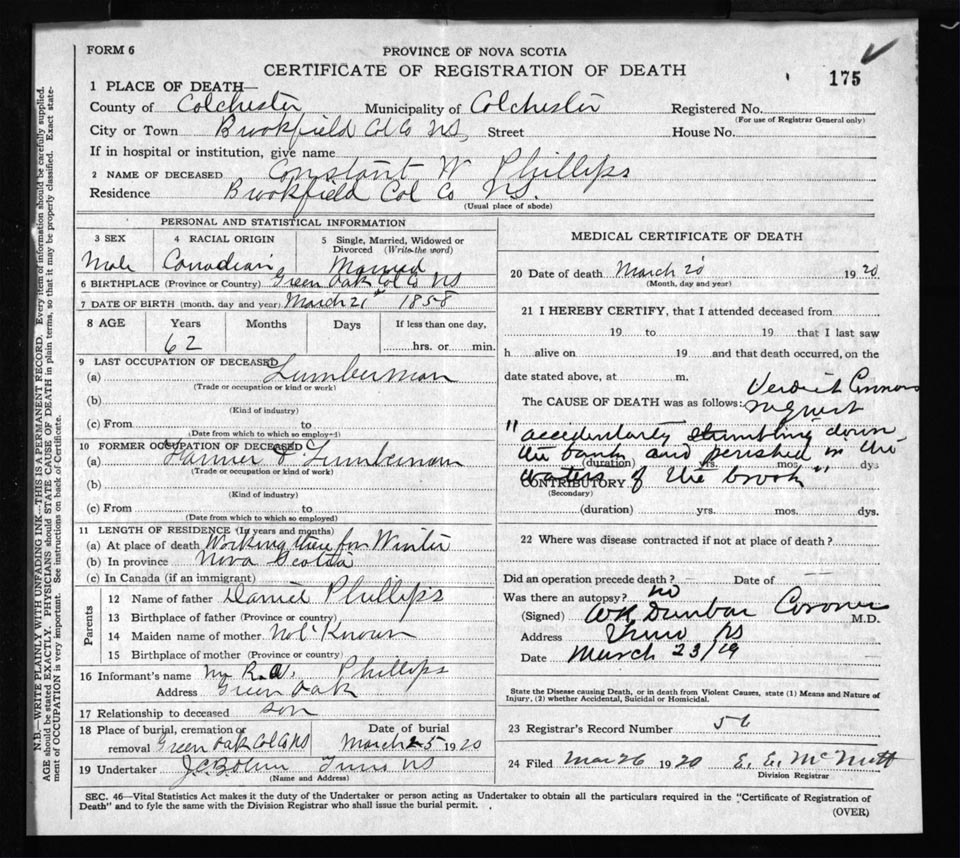 FORM 6
PROVINCE OF NOVA SCOTIA
CERTIFICATE OF REGISTRATION OF DEATH
175
1 PLACE OF DEATH—
County of Colchester Municipality of Colchester Registered No.
(For use of Registrar General only)
City or Town Brookfield Col Co NS, Street House No.
If in hospital or institution, give name
2 NAME OF DECEASED Constant W Phillips
Residence Brookfield Col Co N.S.
(Usual place of abode)
PERSONAL AND STATISTICAL INFORMATION
3 SEX 4 RACIAL ORIGIN 5 Single, Married, Widowed or Divorced (Write the word)
Male Canadian Married
6 BIRTHPLACE (Province or Country) Green Oak Col Co NS
7 DATE OF BIRTH (month, day and year) March 21st 1858
8 AGE Years Months Days If less than one day,
62 hrs. or min.
9 LAST OCCUPATION OF DECEASED
(a) Lumberman
(Trade or occupation or kind or work)
(b)
(Kind of industry)
(c) From to
(Date from which to which so employed)
10 FORMER OCCUPATION OF DECEASED
(a) Farmer & Lumberman
(Trade or occupation or kind of work)
(b)
(Kind of industry)
(c) From to
(Date from which to which so employed)
11 LENGTH OF RESIDENCE (In years and months)
(a) At place of death Working there for Winter
(b) In province Nova Scotia
(c) In Canada (if an immigrant)
Parents
12 Name of father Daniel Phillips
13 Birthplace of father (Province or country)
14 Maiden name of mother Not Known
15 Birthplace of mother (Province or country)
16 Informant's name R. A. Phillips
Address Green Oak
17 Relationship to deceased son
18 Place of burial, cremation or removal Green Oak Col Co NS Date of burial March 25 1920
19 Undertaker Truro NS
(Name and Address)
MEDICAL CERTIFICATE OF DEATH
20 Date of death March 20 1920
(Month, day and year)
21 I HEREBY CERTIFY, that I attended deceased from
19 to 19 that I last saw
h alive on 19 and that death occurred, on the
date stated above, at m.
The CAUSE OF DEATH was as follows: Verdict Coroners
Inquest
"accidentally stumbling down
the bank and perished in the
(duration) yrs. mos. dys
waters of the brook"
CONTRIBUTORY
(Secondary)
(duration) yrs. mos. dys.
22 Where was disease contracted if not at place of death?
Did an operation precede death? Date of
Was there an autopsy? no
(Signed) WR Dunbar Coroner M.D.
Address Truro NS
Date March 23/19
State the Disease causing Death, or in death from Violent Causes, state (1) Means and Nature of
Injury, (2) whether Accidental, Suicidal or Homicidal.
23 Registrar's Record Number
24 Filed Mar 26 1920 E. E. McNutt
Division Registrar
SEC. 46—Vital Statistics Act makes it the duty of the Undertaker or person acting as Undertaker to obtain all the particulars required in the "Certificate of Registration of
Death" and to fyle the same with the Division Registrar who shall issue the burial permit.
(OVER)
N.B.—WRITE PLAINLY WITH UNFADING INK—THIS IS A PERMANENT RECORD. Every item of information should be carefully supplied.
AGE should be stated EXACTLY. PHYSICIANS should STATE CAUSE OF DEATH in plain terms, so that it may be properly classified. Exact state-
ment of OCCUPATION is very important. See instructions on back of Certificate.